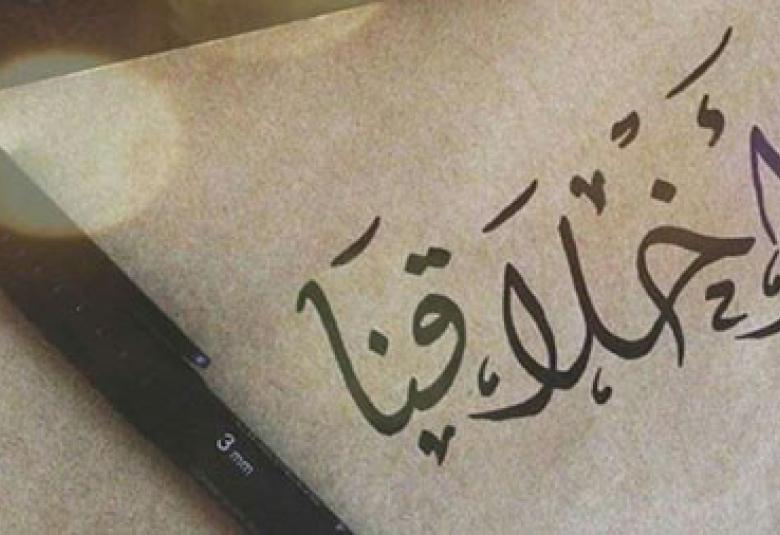 أَخْلَاقِنَا
3 mm